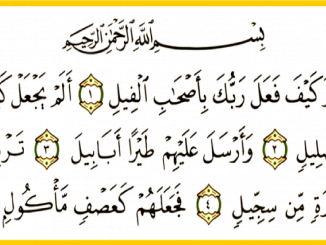 بِسْمِ اللَّهِ الرَّحْمَٰنِ الرَّحِيمِ
كَيْفَ فَعَلَ رَبُّكَ بِأَصْحَابِ الْفِيلِ ١ أَلَمْ يَجْعَلْ
٢ وَأَرْسَلَ عَلَيْهِمْ طَيْرًا أَبَابِيلَ ٣
مِّن سِجِّيلٍ ٤ فَجَعَلَهُمْ كَعَصْفٍ مَّأْكُولٍ